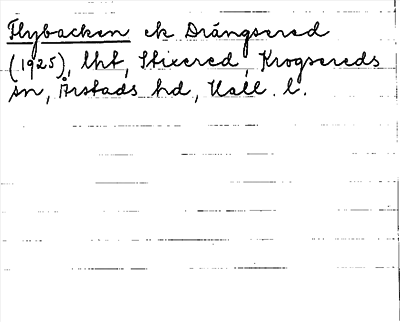 Flybacken ek Drängsered
(1925), lht, Stixered, Krogsereds
sn, Årstads hd, Hall. l.